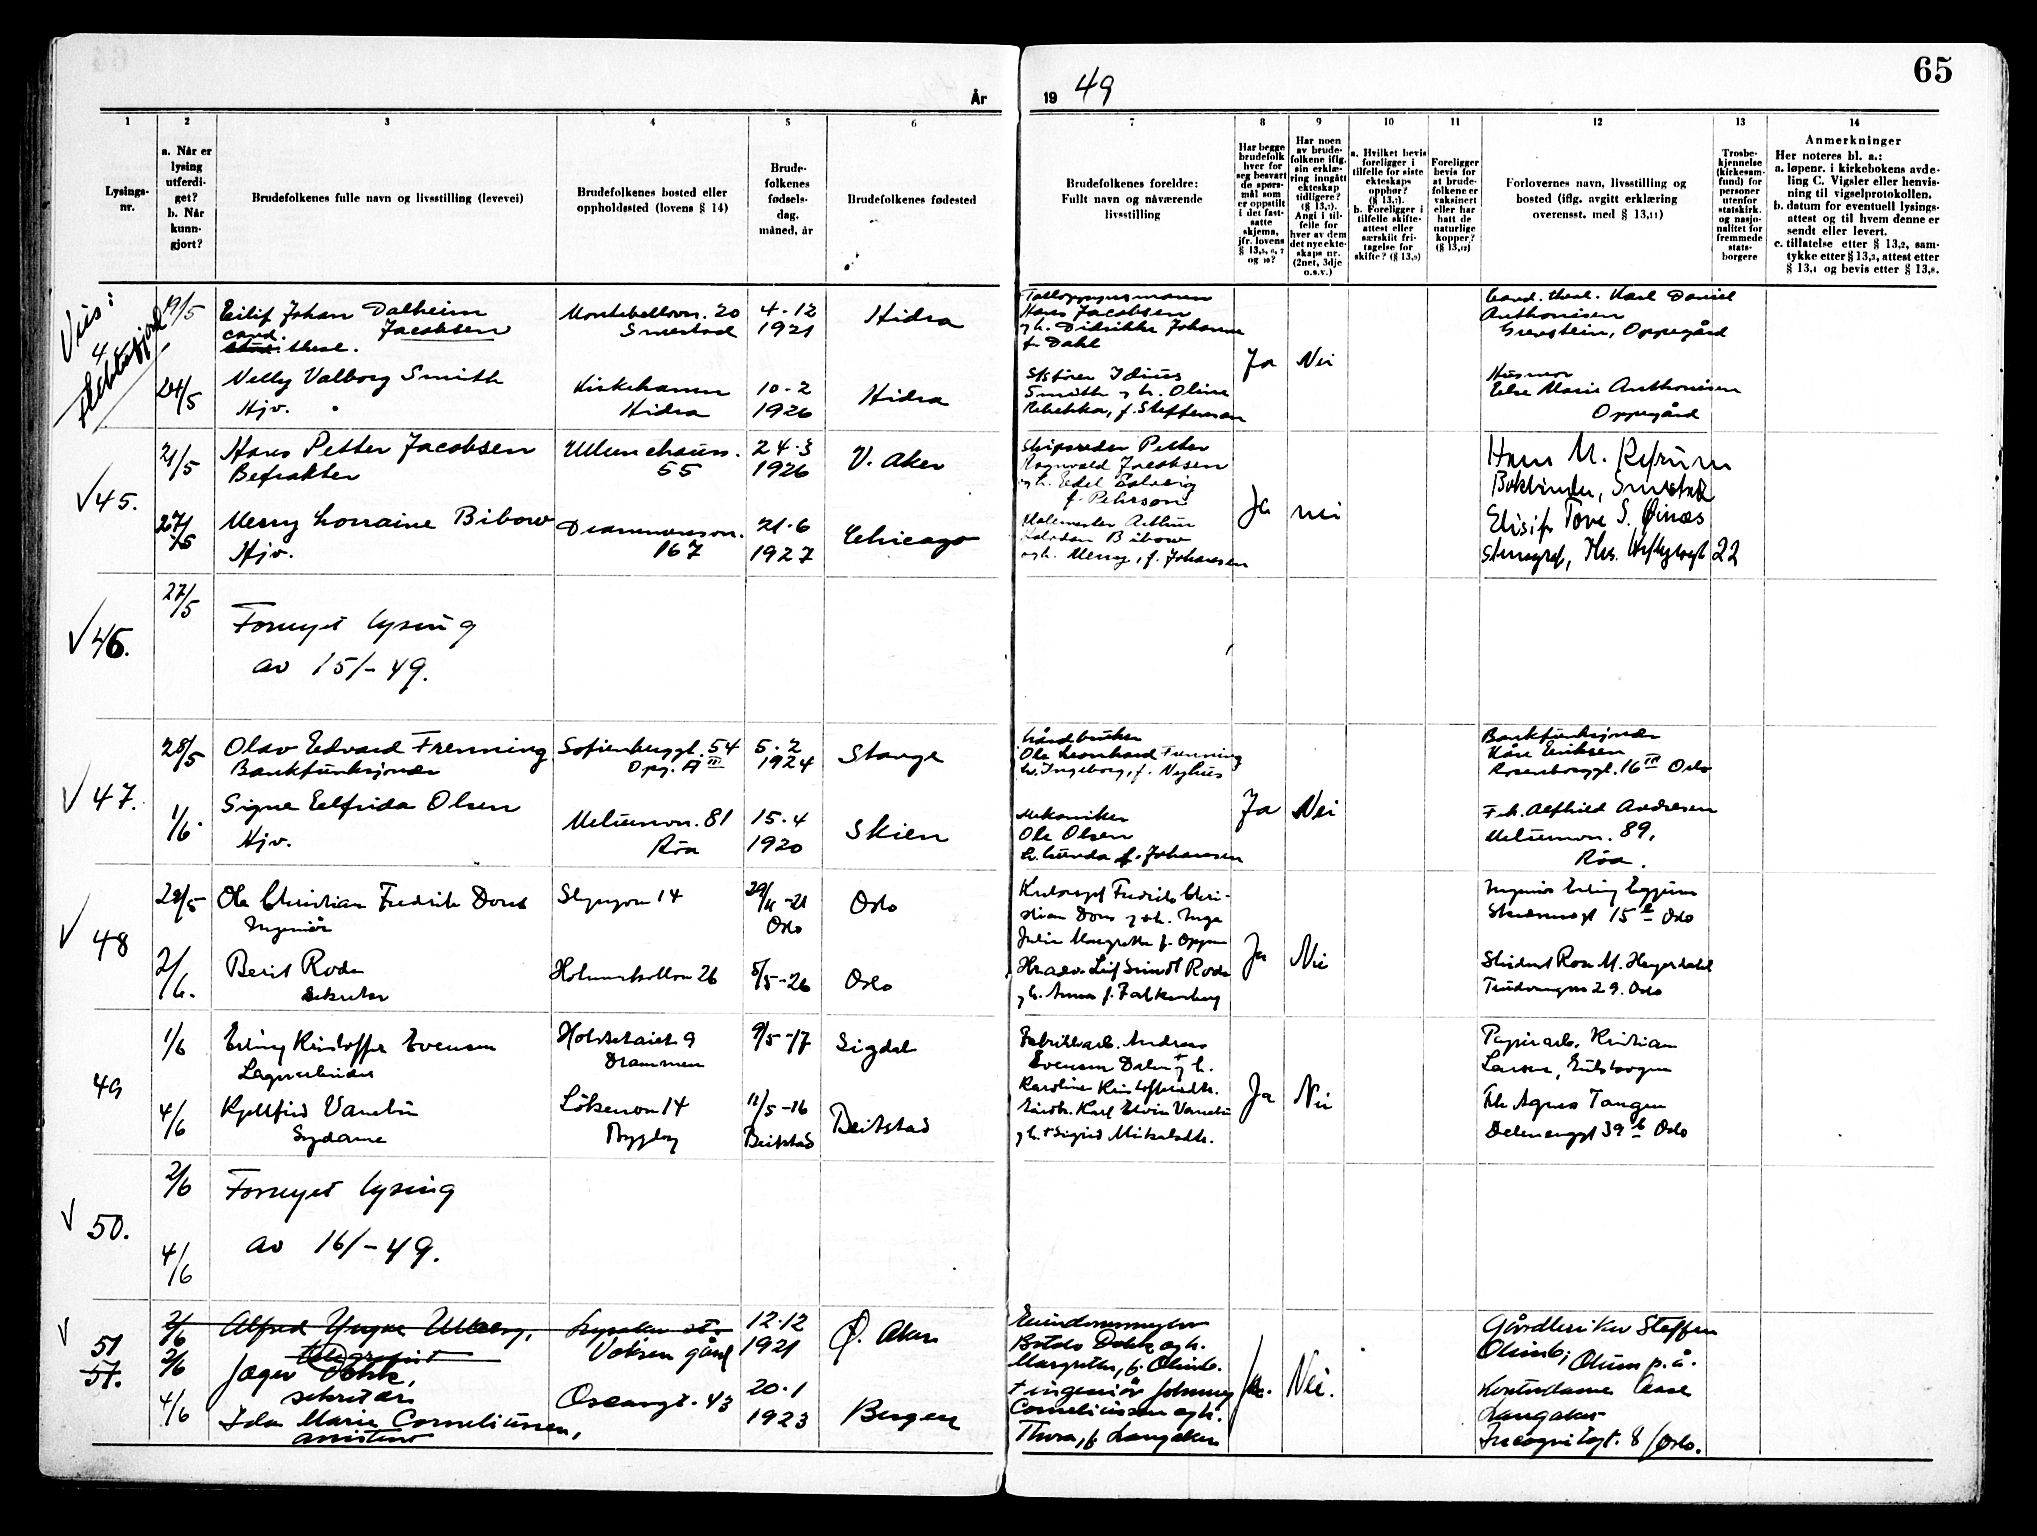 65
År 19 49
1
2
3
4
5
6
7
8
9
10
11
12
13
14
Lysings-
nr.
a. Når er
lysing
utferdi-
get?
b. Når
kunn-
gjort?
Brudefolkenes fulle navn og livsstilling (levevei)
Brudefolkenes bosted eller
oppholdssted (lovens § 14)
Brude-
folkenes
fødsels-
dag,
måned, år
Brudefolkenes fødested
Brudefolkenes foreldre:
Fullt navn og nåværende
livsstilling
Har begge
brudefolk
hver for
seg besvart
de spørs-
mål som
er oppstilt
i det fast-
satte
skjema,
jfr. lovens
§ 13,5, 6, 7
og 10?
Har noen
av brude-
folkene iflg.
sin erklæ-
ring inngått
ekteskap
tidligere?
(§ 13,7).
Angi i til-
felle for
hver av dem
det nye ekte-
skaps nr.
(2net, 3dje
o.s.v.)
a. Hvilket bevis
foreligger i
tilfelle for siste
ekteskaps
opphør?
(§ 13,7).
b. Foreligger i
tilfelle skifte-
attest eller
særskilt fri-
tagelse for
skifte? (§ 13,9)
Foreligger
bevis for
at brude-
folkene er
vaksinert
eller har
hatt de
naturlige
kopper?
(§ 13,12)
Forlovernes navn, livsstilling og
bosted (iflg. avgitt erklæring
overensst. med § 13,11)
Trosbe-
kjennelse
(kirkesam-
fund) for
personer
utenfor
statskirk.
og nasjo-
nalitet for
fremmede
stats-
borgere
Anmerkninger
Her noteres bl. a.:
a. løpenr. i kirkebokens avde-
ling C. Vigsler eller henvis-
ning til vigselprotokollen.
b. datum for eventuell lysings-
attest og til hvem denne er
sendt eller levert.
c. tillatelse etter § 13,2, sam-
tykke etter § 13,3, attest etter
§ 13,4 og bevis etter § 13,8.
19/5
Eilif Johan Dalheim
Jacobsen
cand. theol.
Montebellovn. 20
Smestad
4-12
1921
Hidra
Hans Jacobsen
og h. Didrikke Johanne
f. Dahl
Ja Nei
Cand. theol. Karl Daniel
Anthonisen
Oppegård
24/5
Nelly Valborg Smith
Hjv.
Kirkehavn
Hidra
10-2
1926
Hidra
Smith og h. Oline
Rebekka, f. Steffensen
Husmor
Else Marie Anthonisen
Oppegård
45.
21/5
Hans Petter Jacobsen
Befrakter
Ullernchauss.
55
24-3
1926
V. Aker
Skipsreder Petter
Ragnvald Jacobsen
og h. Edel Solveig
f. Pehrson
Ja nei
Bokbinder, Smestad
27/5
Merry Lorraine Bibow
Hjv.
Drammensvn.
167
21-6
1927
Chicago
Malermester Arthur
Bibow
og h. Merry, f. Johansen
Elisif Tove S. Øinæs
22
46.
27/5
Fornyet lysing
av 15/-49.
47.
28/5
Olav Edvard Frenning
Bankfunksjonær
Sofienberggt. 54
Opg. A III
5-2
1924
Stange
Gårdbruker
Ole Leonhard Frenning
h. Ingeborg, f. Nyhus
Ja Nei
Bankfunksjonær
Kåre Eriksen
Rosenborggt. 16 III Oslo
1/6
Signe Elfrida Olsen
Hjv.
Melumvn. 81
Røa
15-4
1920
Skien
Mekaniker
Ole Olsen
h. Gunda f. Johansen
Frk. Alfhild Andresen
Melumvn. 89,
Røa.
48
28/5
Ole Christian Fredrik Dons
Ingeniør
14
29/11-21
Oslo
Oslo
Fredrik Chri-
stian Dons og h. Inga
Julie Margrethe f. Oppen
Ja Nei
Ingeniør Erling
15 b Oslo
2/6.
Berit Rode
Sekretær
Holmenkollvn 26
5/5-26
Oslo
Leif Sundt Rode
og h. Anna f. Falkenberg
Student Rosa M. Heyerdahl
29. Oslo
49
1/6
Erling Kristoffer Evensen
Lagerarbeider
9
Drammen
9/5-17
Sigdal
Fabrikkarb. Andreas
Evensen Dalen + og h.
Karoline Kristoffersdtr.
Ja Nei
Papirarb. Kristian
Larsen,
4/6
Kjellfrid Vanebu
Sydame
Løkenvn 14
11/5-16
Beitstad
Beitstad
Gårdbr. Karl Elvin Vanebu
og h. + Sigrid Mikalsdtr.
Frk Agnes Tangen
Dælenenggt 39 b Oslo
50.
2/6
4/6
Fornyet lysing
av 16/-49.
51
57.
2/6
Alfred Yngve Ullberg,
telegrafist
Lysaker st.
2/6
Jøger Dokk,
sekretær
Voksen gård
12-12
1921
Ø. Aker
Eiendomsmegler
Botolv Dokk og h.
Margrethe, f. Olimb.
Ja. Nei.
Gårdbruker Steffen
Olimb,
4/6
Ida Marie Corneliussen,
assistent
Oscarsgt. 43
20-1
1923
Bergen
+ ingeniør Johnny
Corneliussen og h.
Thora, f. Langaker
Kontordame Aase
Langaker
Incognitogt. 8 / Oslo.